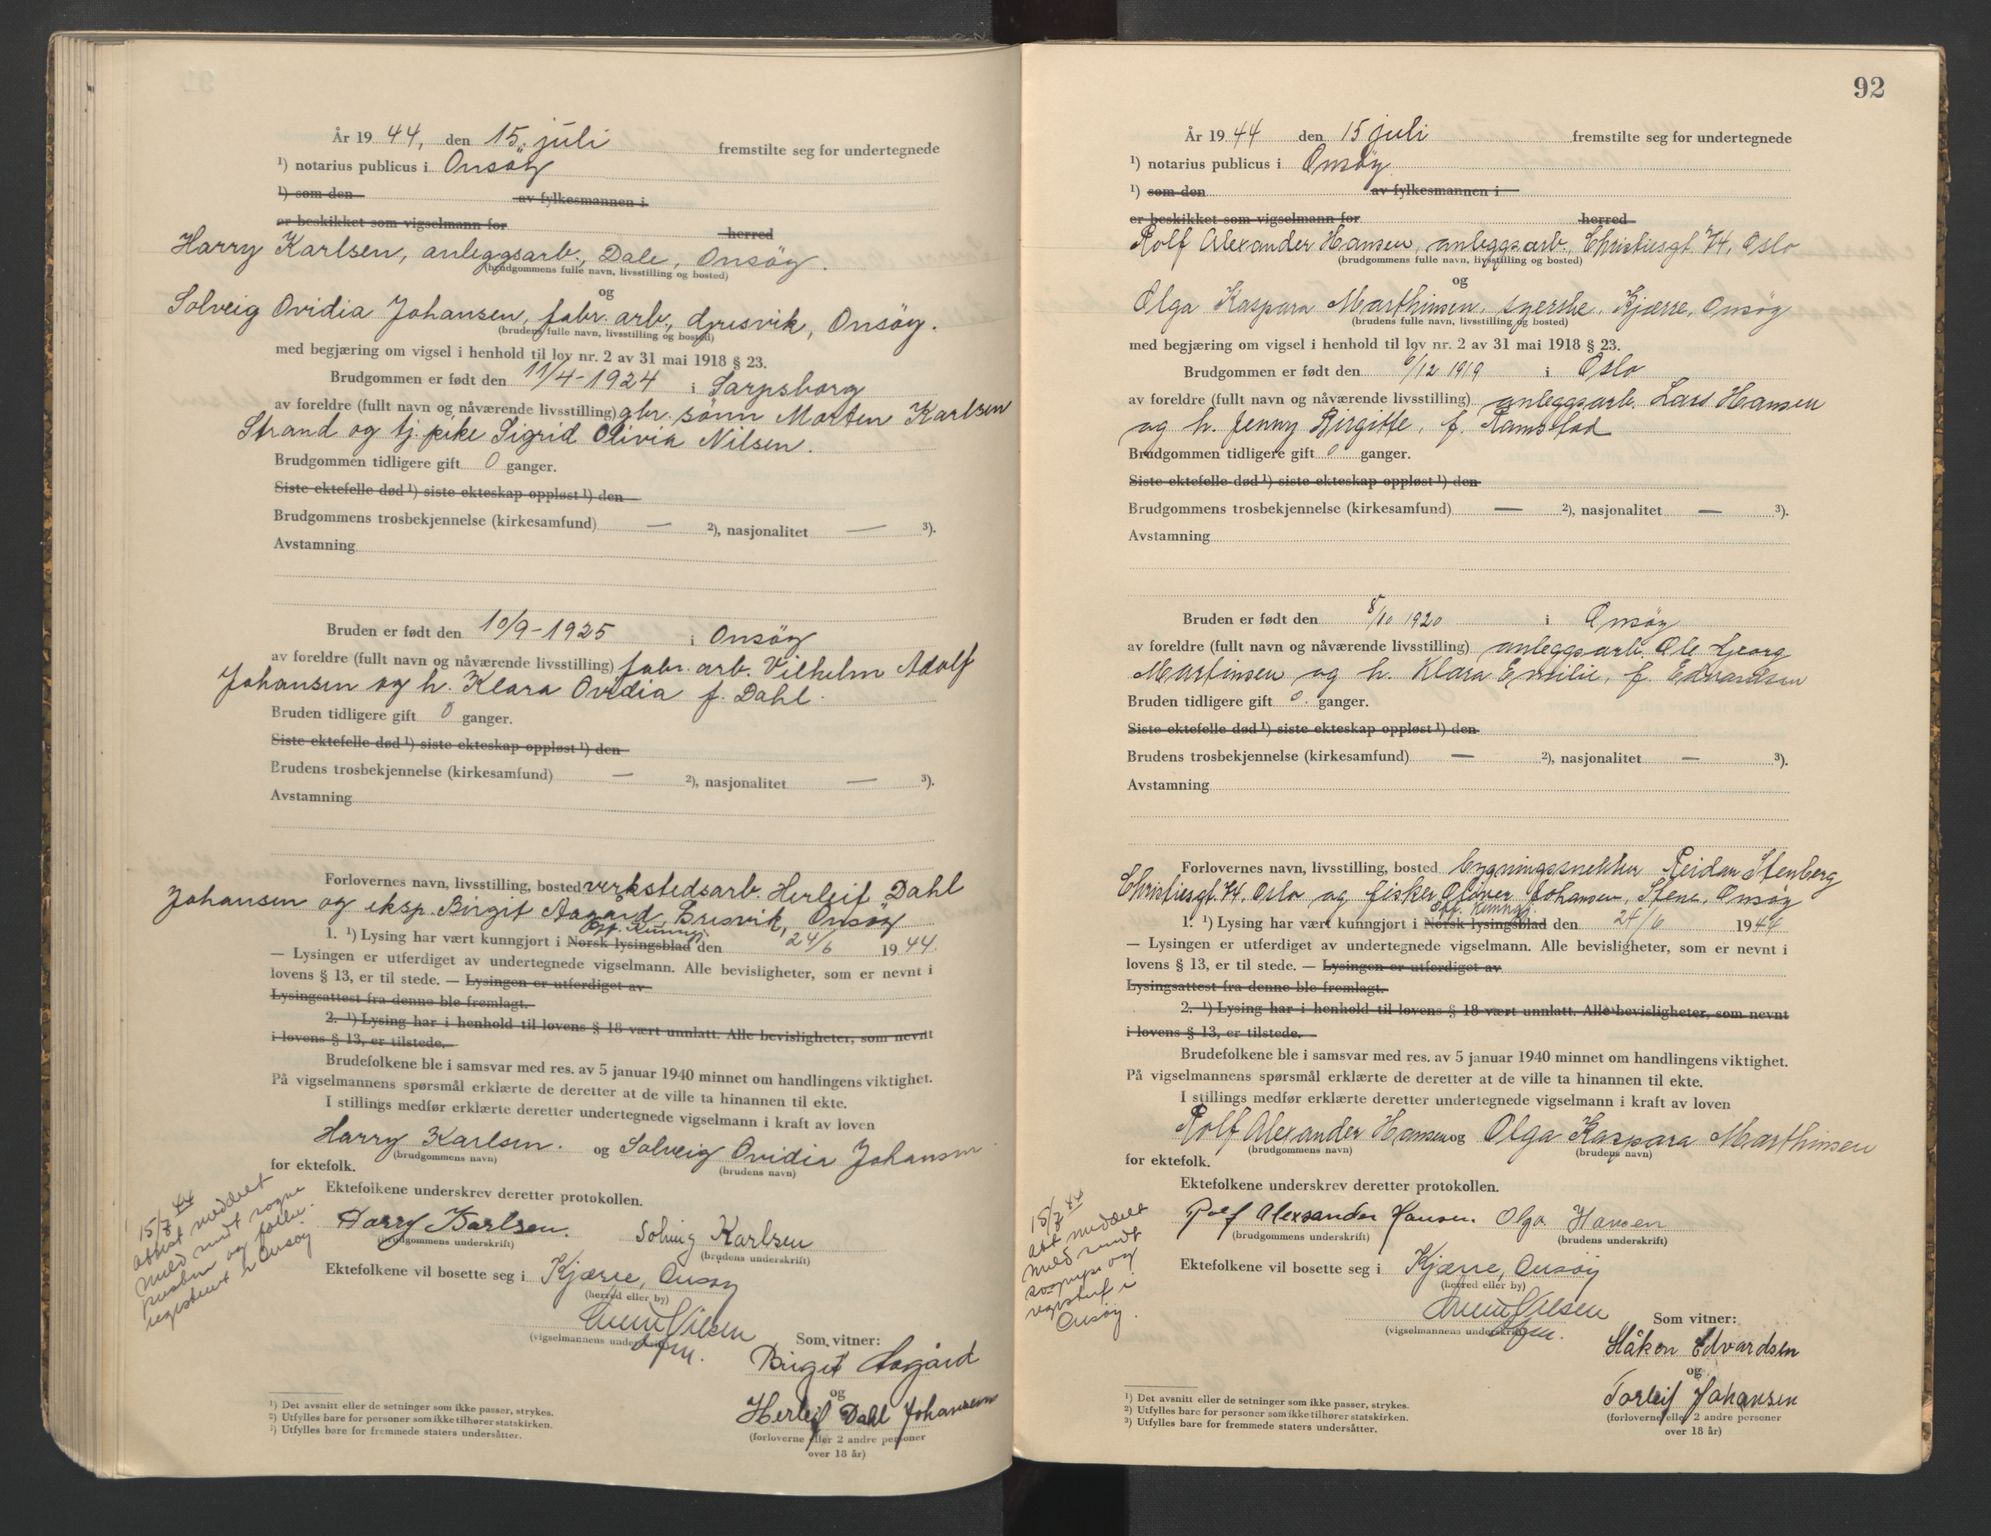 År 1944, den 15. juli fremstilte seg for undertegnede
¹) notarius publicus i Onsöy
¹) som den av fylkesmannen i
er beskikket som vigselmann for herred
Harry Karlsen, anleggsarb., Dale, Onsöy.
(brudgommens fulle navn, livsstilling og bosted)
og
Solveig Ovidia Johansen, fabr. arb., Gresvik, Onsöy.
(brudens fulle navn, livsstilling og bosted)
med begjæring om vigsel i henhold til lov nr. 2 av 31 mai 1918 § 23.
Brudgommen er født den 11/4-1924 i Sarpsborg
av foreldre (fullt navn og nåværende livsstilling) gbr. sönn Morten Karlsen
Strand og tj. pike Sigrid Olivia Nilsen.
Brudgommen tidligere gift 0 ganger.
Siste ektefelle død ¹) siste ekteskap oppløst ¹) den
Brudgommens trosbekjennelse (kirkesamfund) — ²), nasjonalitet — ³).
Avstamning
Bruden er født den 10/9-1925 i Onsöy
av foreldre (fullt navn og nåværende livsstilling) fabr. arb. Vilhelm Adolf
Johansen og h. Klara Ovidia f. Dahl.
Bruden tidligere gift 0 ganger.
Siste ektefelle død ¹) siste ekteskap oppløst ¹) den
Brudens trosbekjennelse (kirkesamfund) — ²), nasjonalitet — ³).
Avstamning
Forlovernes navn, livsstilling, bosted verkstedsarb. Herleif Dahl
Johansen og eksp. Birgit Aagård, Gresvik, Onsöy
Off. Kunngj.
1. ¹) Lysing har vært kunngjort i Norsk lysingsblad den 24/6 1944.
— Lysingen er utferdiget av undertegnede vigselmann. Alle bevisligheter, som er nevnt i
lovens § 13, er til stede. — Lysingen er utferdiget av
Lysingsattest fra denne ble fremlagt.
2. ¹) Lysing har i henhold til lovens § 18 vært unnlatt. Alle bevisligheter, som nevnt
i lovens § 13, er tilstede.
Brudefolkene ble i samsvar med res. av 5 januar 1940 minnet om handlingens viktighet.
På vigselmannens spørsmål erklærte de deretter at de ville ta hinannen til ekte.
I stillings medfør erklærte deretter undertegnede vigselmann i kraft av loven
Harry Karlsen. og Solveig Ovidia Johansen
(brudgommens navn) (brudens navn)
for ektefolk.
Ektefolkene underskrev deretter protokollen.
Harry Karlsen. Solveig Karlsen
(brudgommens underskrift) (brudens underskrift)
Ektefolkene vil bosette seg i Kjærre, Onsöy
(herred eller by)
15/7 44
Attest meddelt
meld. sendt sogne
presten og folke
registeret i Onsöy
Nilsen
(vigselmannens underskrift)
Som vitner:
Birgit Aagård
og
Herleif Dahl Johansen
(forloverne eller 2 andre personer
over 18 år)
¹) Det avsnitt eller de setninger som ikke passer, strykes.
²) Utfylles bare for personer som ikke tilhører statskirken.
³) Utfylles bare for fremmede staters undersåtter.
92
År 1944 den 15 juli fremstilte seg for undertegnede
¹) notarius publicus i Onsöy
¹) som den av fylkesmannen i
er beskikket som vigselmann for herred
Rolf Alexander Hansen, anleggsarb. Christiesgt. 74, Oslo
(brudgommens fulle navn, livsstilling og bosted)
og
Olga Kaspara Marthinsen, syerske, Kjærre, Onsöy
(brudens fulle navn, livsstilling og bosted)
med begjæring om vigsel i henhold til lov nr. 2 av 31 mai 1918 § 23.
Brudgommen er født den 6/12 1919 i Oslo
av foreldre (fullt navn og nåværende livsstilling) anleggsarb. Lars Hansen
og h. Jenny Birgitte, f. Ramstad
Brudgommen tidligere gift 0 ganger.
Siste ektefelle død ¹) siste ekteskap oppløst ¹) den
Brudgommens trosbekjennelse (kirkesamfund) — ²), nasjonalitet — ³).
Avstamning
Bruden er født den 8/10 1920 i Onsöy
av foreldre (fullt navn og nåværende livsstilling) anleggsarb. Ole Georg
Martinsen og h. Klara Emilie, f. Edvardsen
Bruden tidligere gift 0. ganger.
Siste ektefelle død ¹) siste ekteskap oppløst ¹) den
Brudens trosbekjennelse (kirkesamfund) — ²), nasjonalitet — ³).
Avstamning
Forlovernes navn, livsstilling, bosted bygningssnekker Reidar Stenberg
Christiesgt. 74, Oslo og fisker Oliver Johansen, Stene, Onsöy
Off. Kunngj.
1. ¹) Lysing har vært kunngjort i Norsk lysingsblad den 24/6 1944
— Lysingen er utferdiget av undertegnede vigselmann. Alle bevisligheter, som er nevnt i
lovens § 13, er til stede. — Lysingen er utferdiget av
Lysingsattest fra denne ble fremlagt.
2. ¹) Lysing har i henhold til lovens § 18 vært unnlatt. Alle bevisligheter, som nevnt
i lovens § 13, er tilstede.
Brudefolkene ble i samsvar med res. av 5 januar 1940 minnet om handlingens viktighet.
På vigselmannens spørsmål erklærte de deretter at de ville ta hinannen til ekte.
I stillings medfør erklærte deretter undertegnede vigselmann i kraft av loven
Rolf Alexander Hansen og Olga Kaspara Marthinsen
(brudgommens navn) (brudens navn)
for ektefolk.
Ektefolkene underskrev deretter protokollen.
Rolf Alexsander Hansen. Olga Hansen
(brudgommens underskrift) (brudens underskrift)
Ektefolkene vil bosette seg i Kjærre, Onsöy
(herred eller by)
15/7 44
Att meddelt
meld sendt
sognepr og
i
Onsöy.
Nilsen
(vigselmannens underskrift)
Som vitner:
Håken Edvardsen
og
Torleif Johansen
(forloverne eller 2 andre personer
over 18 år)
¹) Det avsnitt eller de setninger som ikke passer, strykes.
²) Utfylles bare for personer som ikke tilhører statskirken.
³) Utfylles bare for fremmede staters undersåtter.